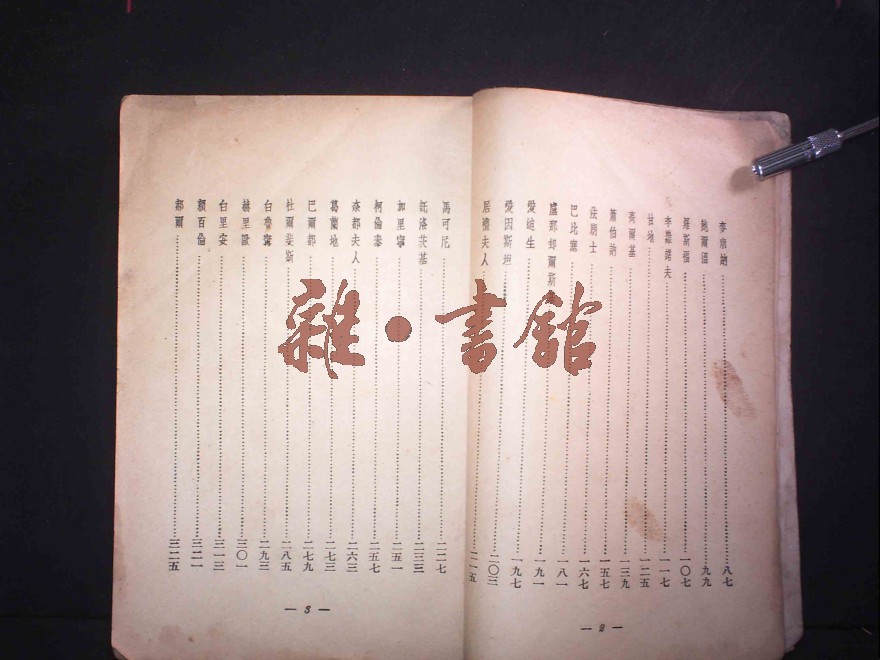 麥東納……八七
鮑爾溫……九九
羅斯福……一〇七
李維諾夫……一一七
甘地……一二五
高爾基……一三九
蕭伯納……一五七
法朗士……一六七
巴比塞……一八一
盧那却爾斯……一九一
愛迪生……一九七
愛因斯坦……二〇三
居禮夫人……二一五
— 2 —
馬可尼……二二七
託洛茨基……二三三
加里寧……二五一
柯倫泰……二五七
奈都夫人……二六三
葛蘭地……二七三
巴爾都……二七九
杜爾斐斯……二八五
白魯寧……二九三
赫里歐……三〇一
白里安……三一三
顏百倫……三二一
都爾……三二五
— 3 —
雜·書館